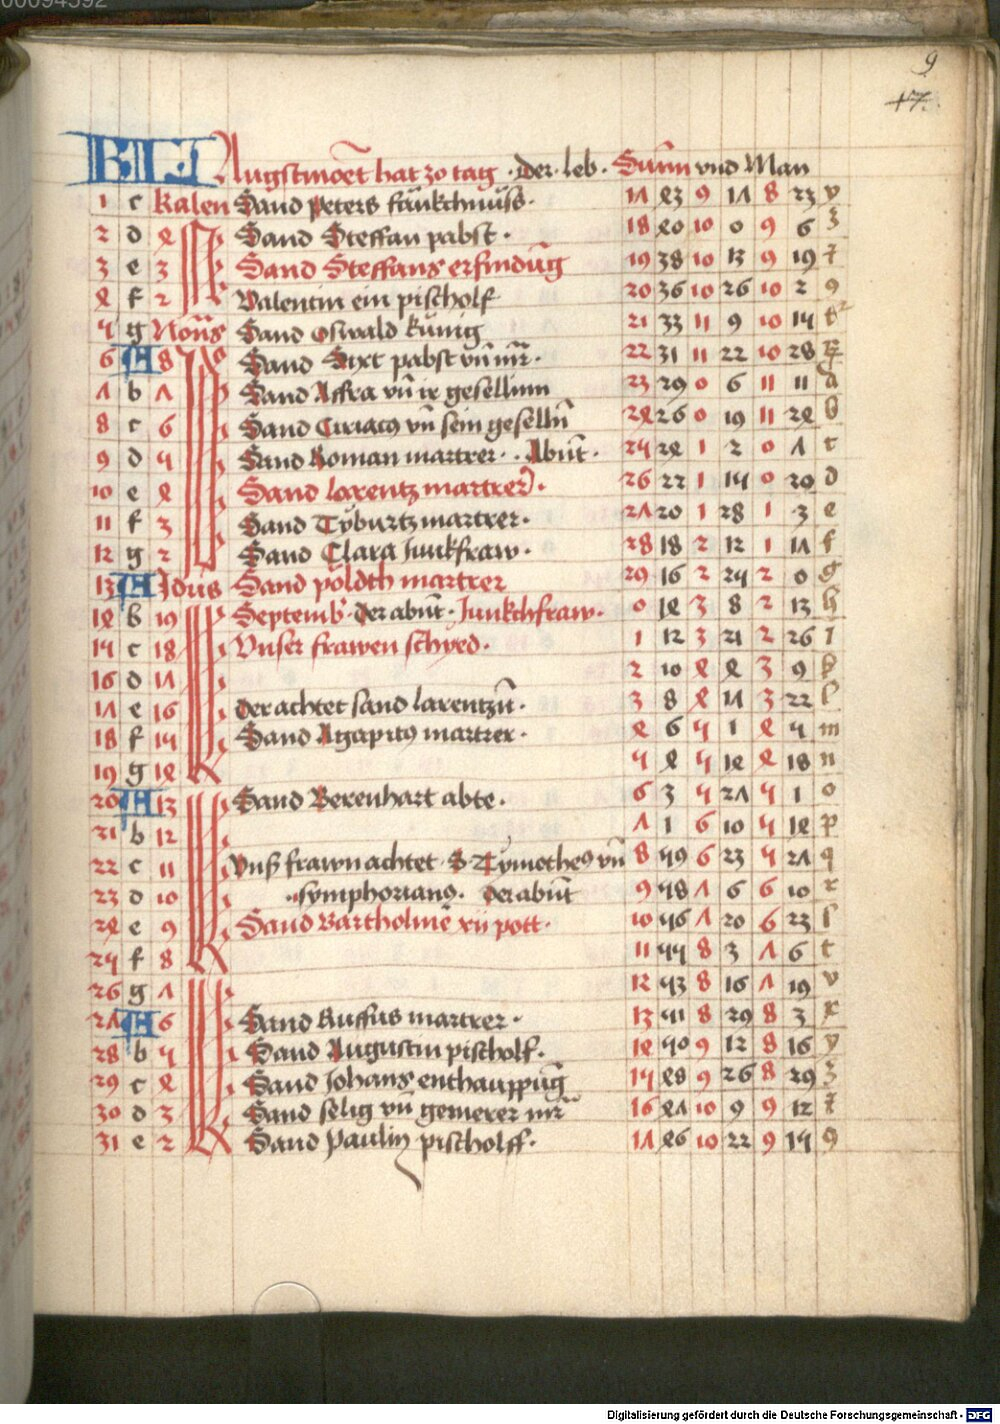 00094592
9
+7.
KL Augstmoēt hat 30 tag · Der · leb · Sūnn vnd Man
1 c Kalen Sand peters fänkchnüss · 17 43 9 17 8 23 v
2 d 4 Sand Steffan pabst · 18 40 10 0 9 6 3
3 e 3 Sand Steffans erfindūg 19 38 10 13 9 19
4 f 2 Valentin ein pischolf 20 36 10 26 10 2 9
5 g Nonus Sand Oswald künig 21 33 11 9 10 15
6 A 8 Sand Sixt pabst vn̄ mr̄ · 22 31 11 22 10 28
7 b 7 Sand Affra vn̄ ir gesellinn 23 29 0 6 11 11 a
8 c 6 Sand Ciriacꝰ vn̄ sein geselln̄ 24 26 0 19 11 24 b
9 d 5 Sand Roman martrer · · Abūt · 25 24 1 2 0 7 c
10 e 4 Sand larentz martrer · 26 22 1 15 0 20 d
11 f 3 Sand Tyburtz martrer · 27 20 1 28 1 3 e
12 g 2 Sand Clara Junkfraw · 28 18 2 12 1 17 f
13 A Idus Sand pöldth martrer 29 16 2 25 2 0 g
14 b 19 Septemb̄ · der abūt · Junkchfraw · 0 14 3 8 2 13 h
15 c 18 Vnser frawen schyed · 1 12 3 21 2 26 i
16 d 17 2 10 4 4 3 9 k
17 e 16 der achtet sand larentzn̄ · 3 8 4 17 3 22 l
18 f 15 Sand Agapitꝰ martrer · 4 6 5 1 4 5 m
19 g 14 5 4 5 14 4 18 n
20 A 13 Sand Berenhart abte · 6 3 5 27 5 1 o
21 b 12 7 1 6 10 5 14 p
22 c 11 Vnß frawn achtet · S Tymotheꝰ vn̄ 8 59 6 23 5 27 q
23 d 10 · symphorianꝰ · Der abūt 9 58 7 6 6 10 r
24 e 9 Sand Bartholmē xii pott · 10 56 7 20 6 23 s
25 f 8 11 55 8 3 7 6 t
26 g 7 12 53 8 16 7 19 v
27 A 6 Sand Ruffus martrer · 13 51 8 29 8 3 x
28 b 5 Sand Augustin pischolf · 14 50 9 12 8 16 y
29 c 4 Sand Johans enthauppūg 15 48 9 26 8 29 3
30 d 3 Sand felig vn̄ gemerer mr̄ 16 47 10 9 9 12
31 e 2 Sand paulin pischolff · 17 46 10 22 9 15 9
Digitalisierung gefördert durch die Deutsche Forschungsgemeinschaft - DFG